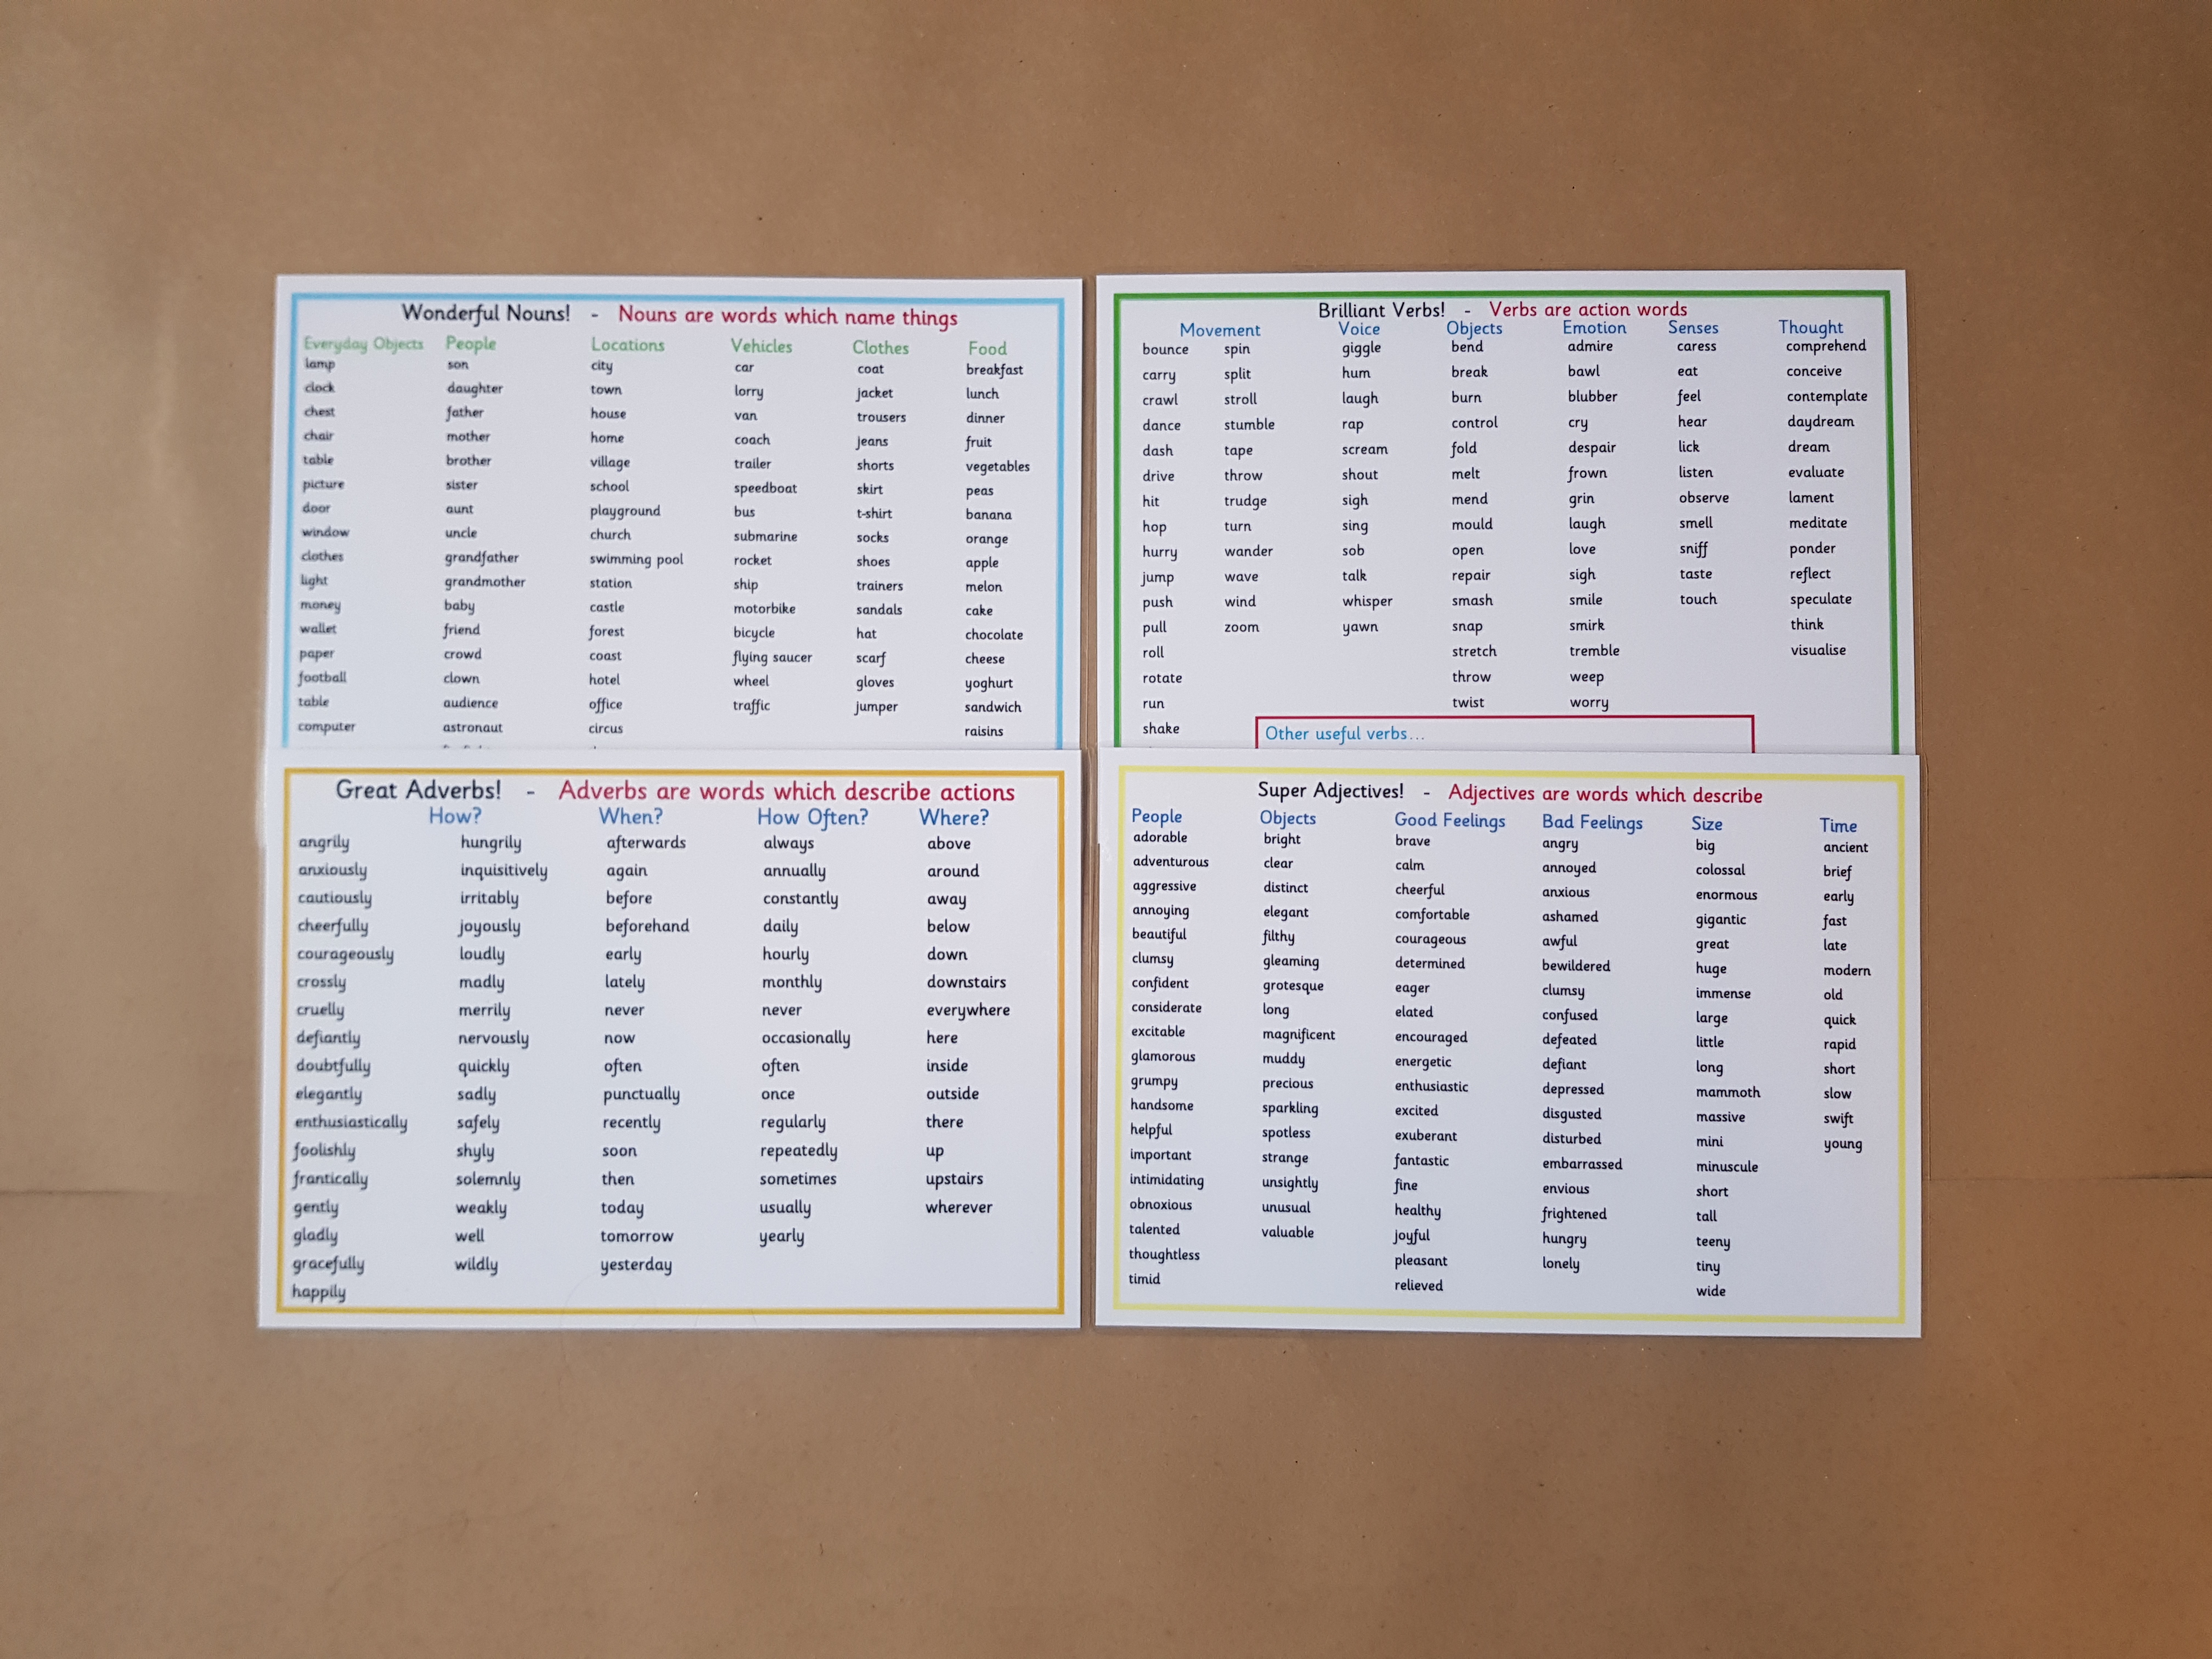 Wonderful Nouns! - Nouns are words which name things
Everyday Objects People Locations Vehicles Clothes Food
lamp son city car coat breakfast
clock daughter town lorry jacket lunch
chest father house van trousers dinner
chair mother home coach jeans fruit
table brother village trailer shorts vegetables
picture sister school speedboat skirt peas
door aunt playground bus t-shirt banana
window uncle church submarine socks orange
clothes grandfather swimming pool rocket shoes apple
light grandmother station ship trainers melon
money baby castle motorbike sandals cake
wallet friend forest bicycle hat chocolate
paper crowd coast flying saucer scarf cheese
football clown hotel wheel gloves yoghurt
table audience office traffic jumper sandwich
computer astronaut circus raisins
Brilliant Verbs! - Verbs are action words
Movement Voice Objects Emotion Senses Thought
bounce spin giggle bend admire caress comprehend
carry split hum break bawl eat conceive
crawl stroll laugh burn blubber feel contemplate
dance stumble rap control cry hear daydream
dash tape scream fold despair lick dream
drive throw shout melt frown listen evaluate
hit trudge sigh mend grin observe lament
hop turn sing mould laugh smell meditate
hurry wander sob open love sniff ponder
jump wave talk repair sigh taste reflect
push wind whisper smash smile touch speculate
pull zoom yawn snap smirk think
roll stretch tremble visualise
rotate throw weep
run twist worry
shake
Other useful verbs...
Great Adverbs! - Adverbs are words which describe actions
How? When? How Often? Where?
angrily hungrily afterwards always above
anxiously inquisitively again annually around
cautiously irritably before constantly away
cheerfully joyously beforehand daily below
courageously loudly early hourly down
crossly madly lately monthly downstairs
cruelly merrily never never everywhere
defiantly nervously now occasionally here
doubtfully quickly often often inside
elegantly sadly punctually once outside
enthusiastically safely recently regularly there
foolishly shyly soon repeatedly up
frantically solemnly then sometimes upstairs
gently weakly today usually wherever
gladly well tomorrow yearly
gracefully wildly yesterday
happily
Super Adjectives! - Adjectives are words which describe
People Objects Good Feelings Bad Feelings Size Time
adorable bright brave angry big ancient
adventurous clear calm annoyed colossal brief
aggressive distinct cheerful anxious enormous early
annoying elegant comfortable ashamed gigantic fast
beautiful filthy courageous awful great late
clumsy gleaming determined bewildered huge modern
confident grotesque eager clumsy immense old
considerate long elated confused large quick
excitable magnificent encouraged defeated little rapid
glamorous muddy energetic defiant long short
grumpy precious enthusiastic depressed mammoth slow
handsome sparkling excited disgusted massive swift
helpful spotless exuberant disturbed mini young
important strange fantastic embarrassed minuscule
intimidating unsightly fine envious short
obnoxious unusual healthy frightened tall
talented valuable joyful hungry teeny
thoughtless pleasant lonely tiny
timid relieved wide